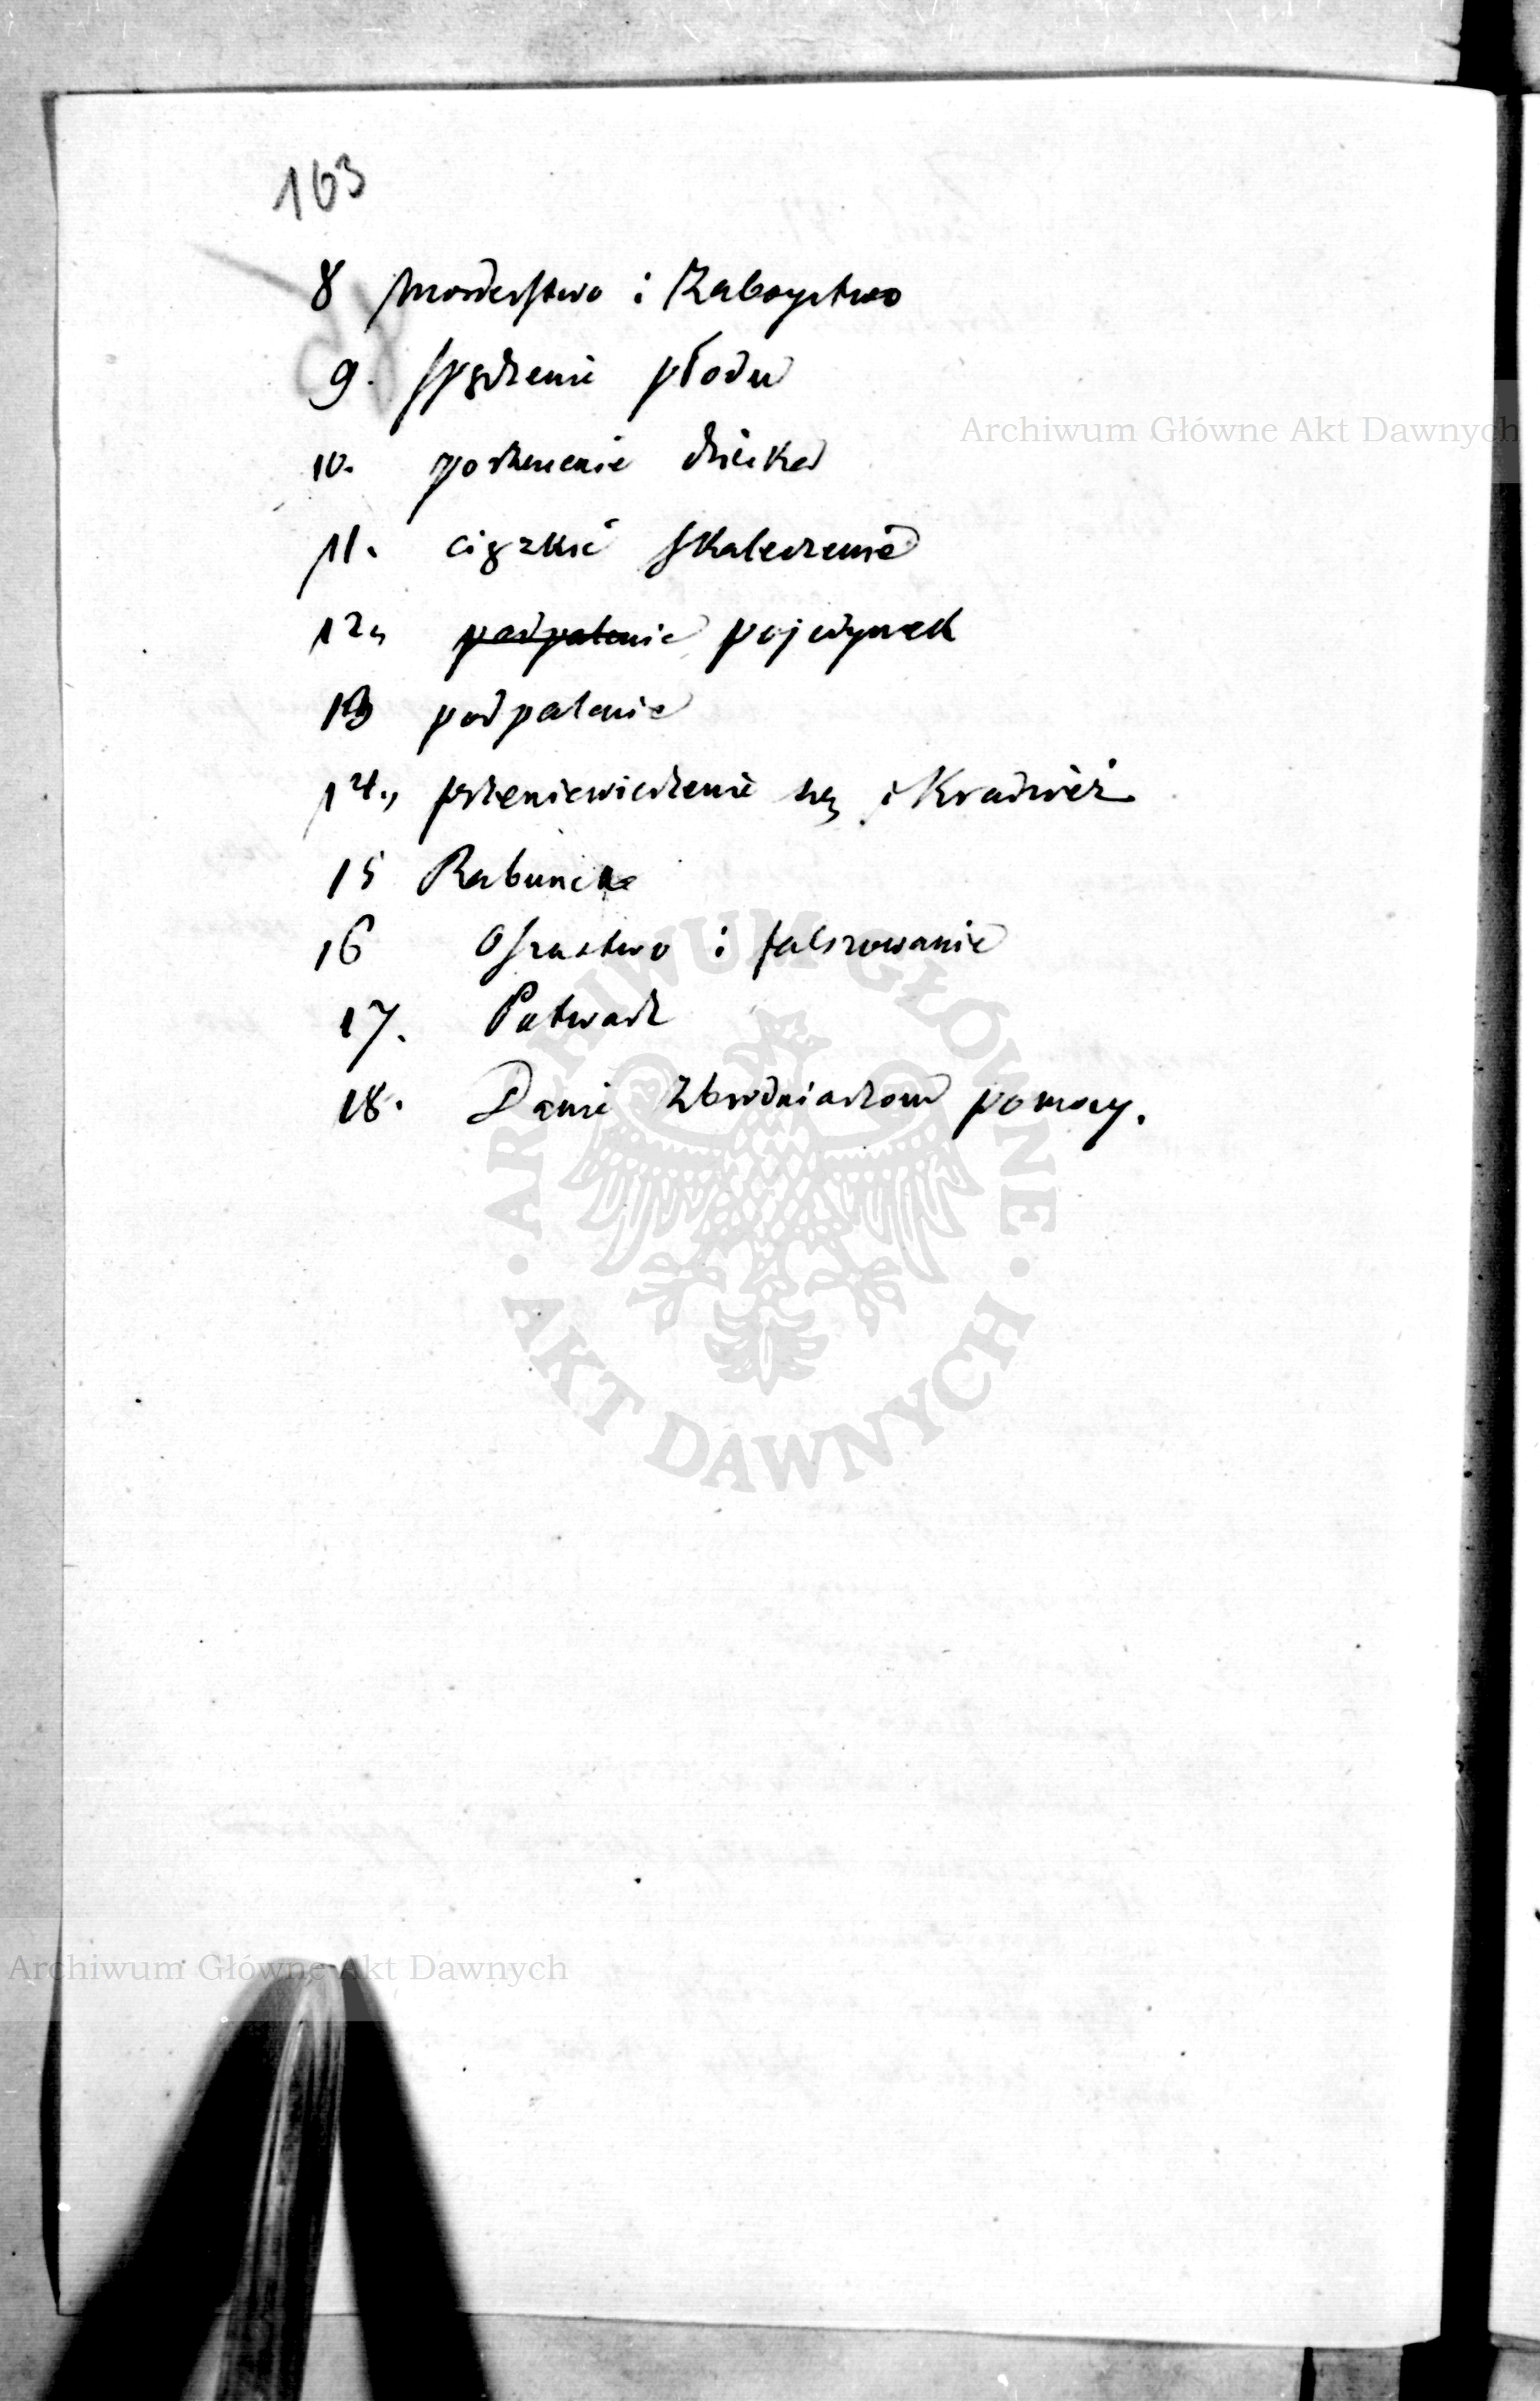 163
8 Morderstwo i Zaboystwo
9. spędzenie płodu
10. porzucenie dziecka
11. cięzkie skaleczenie
12, podpalenie pojedynek
13 podpalenie
14., przeniewierzenie się i Kradzież
15 Rabunek
16 Oszustwo i falszowanie
17. Potwarz
18. Danie zbrodniarzom pomocy.
Archiwum Główne Akt Dawnych
ARCHIWUM GŁÓWNE AKT DAWNYCH
Archiwum Główne Akt Dawnych